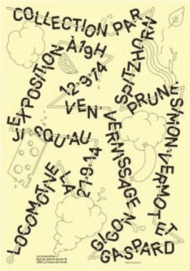 COLLECTION PAR
SPITZHORN
À19H
12·9·14
VEN
VERNISSAGE
EXPOSITION
JUSQU'AU
21·9·14
PRUNE
SIMON-VERMOT ET
GASPARD
GIGON
LA
LOCOMOTIVE